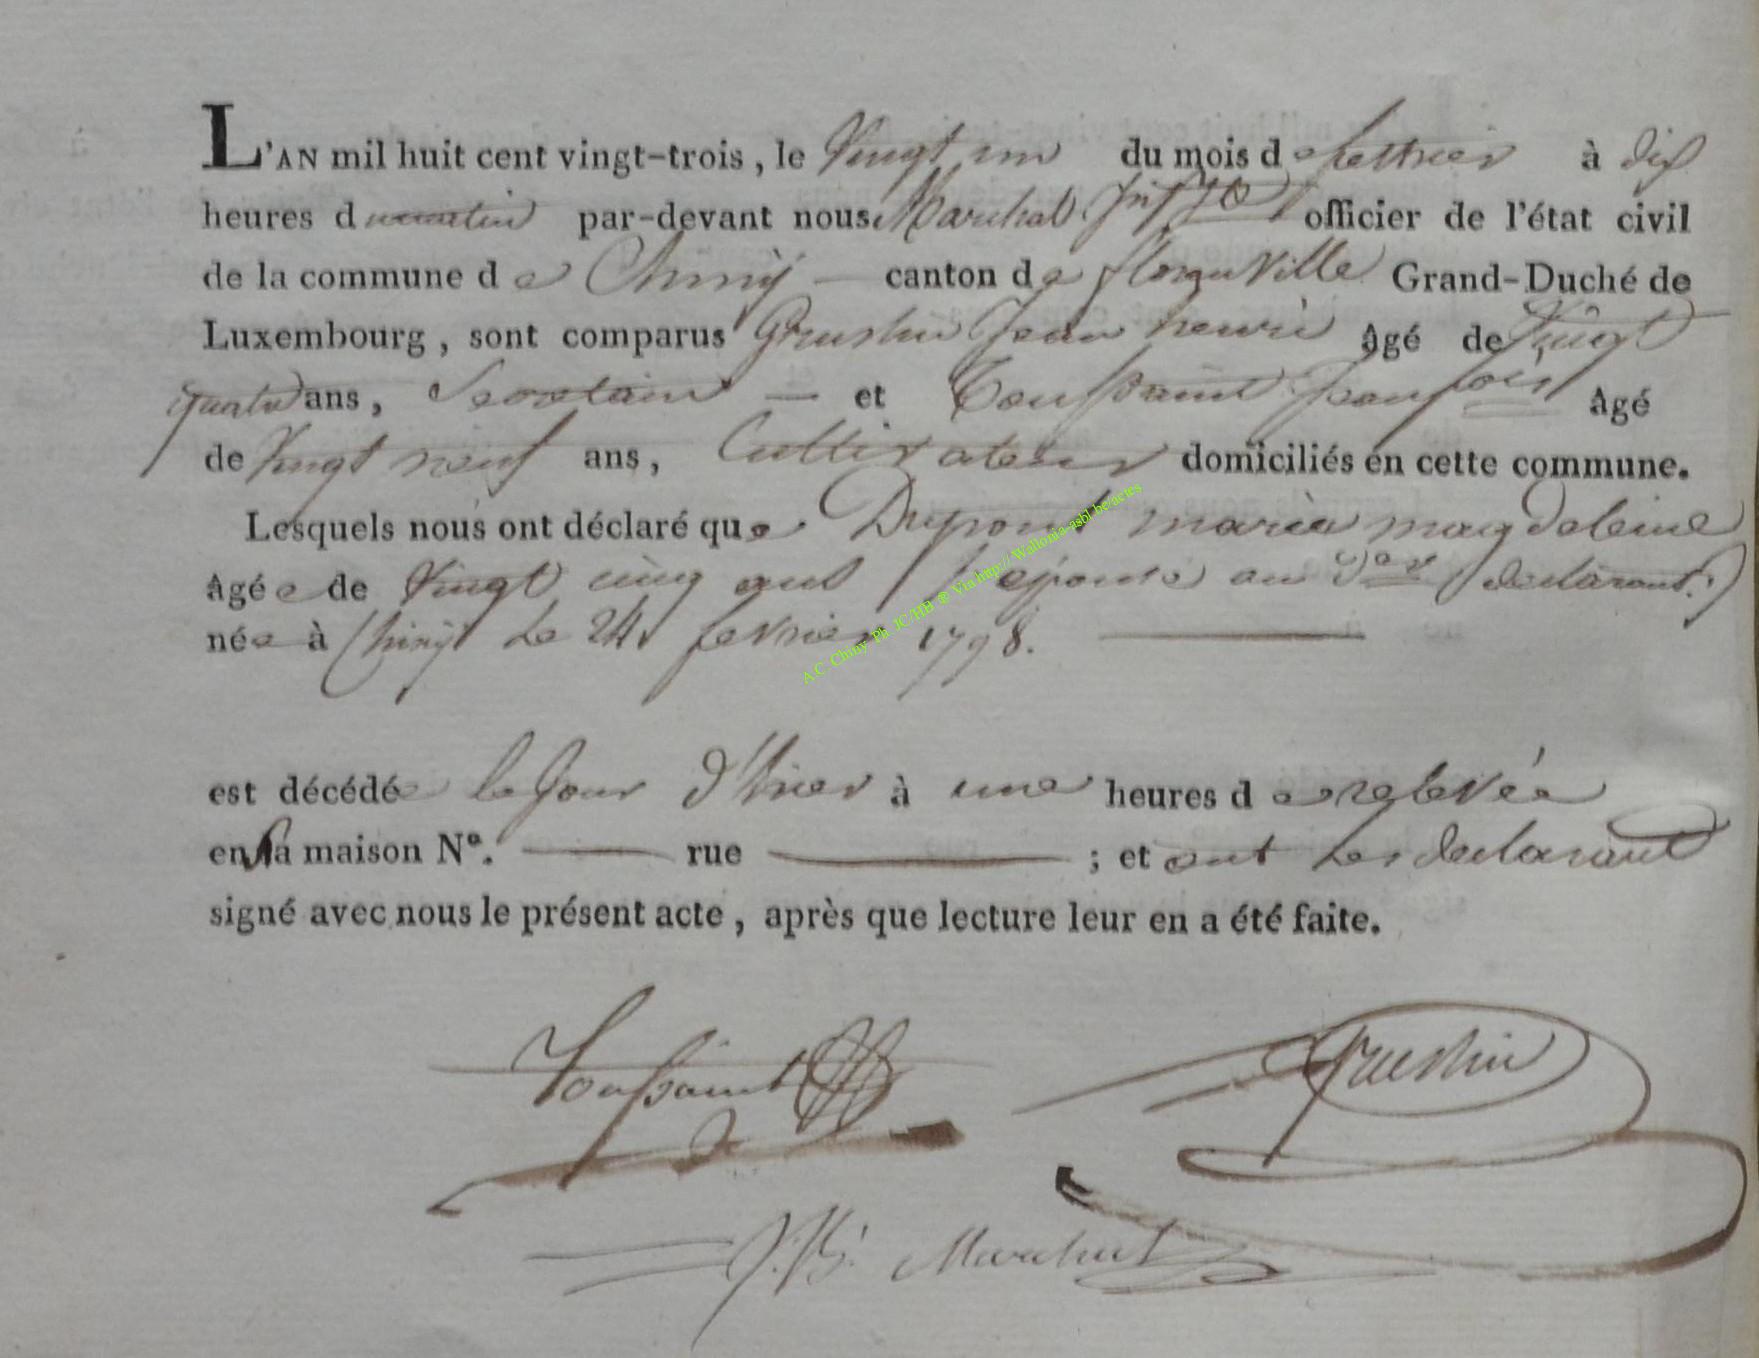 L'AN mil huit cent vingt-trois, le Vingt un du mois de fevrier à dix
heures du matin par-devant nous Marechal officier de l'état civil
de la commune de Chiny — canton de florenville Grand-Duché de
Luxembourg, sont comparus Grustin Jean henri âgé de Vingt
quatre ans, — et Toussaint Jean fois âgé
de Vingt neuf ans, Cultivateur domiciliés en cette commune.
Lesquels nous ont déclaré que Dupont marie magdeleine
âgée de Vingt cinq ans epouse au der declarant
née à Chiny Le 24 fevrier 1798.
est décédée le Jour d'hier à une heures de relevée
en sa maison N°. — rue — ; et ont Les declarant
signé avec nous le présent acte, après que lecture leur en a été faite.
Toussaint Grustin
J.B. Marechal
A.C. Chiny Ph JC/HB ® Via http://Wallonia-asbl.be/actes